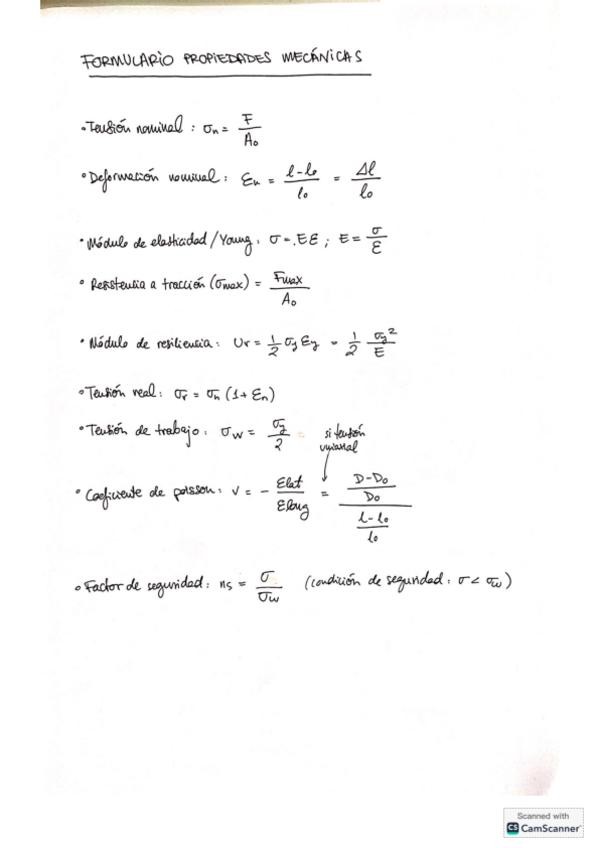 FORMULARIO PROPIEDADES MECÁNICAS
• Tensión nominal : σn = F / A₀
• Deformación nominal : εn = l - l₀ / l₀ = Δl / l₀
• Módulo de elasticidad / Young : σ = Eε ; E = σ / ε
• Resistencia a tracción (σmax) = Fmax / A₀
• Módulo de resiliencia : Ur = 1/2 σy εy = 1/2 σy² / E
• Tensión real : σr = σn (1 + εn)
• Tensión de trabajo : σw = σy / 2
si tensión
uniaxial
• Coeficiente de poisson : ν = - εlat / εlong = D - D₀ / D₀ / l - l₀ / l₀
• Factor de seguridad : ns = σ / σw (condición de seguridad : σ < σw)
Scanned with
CS CamScanner